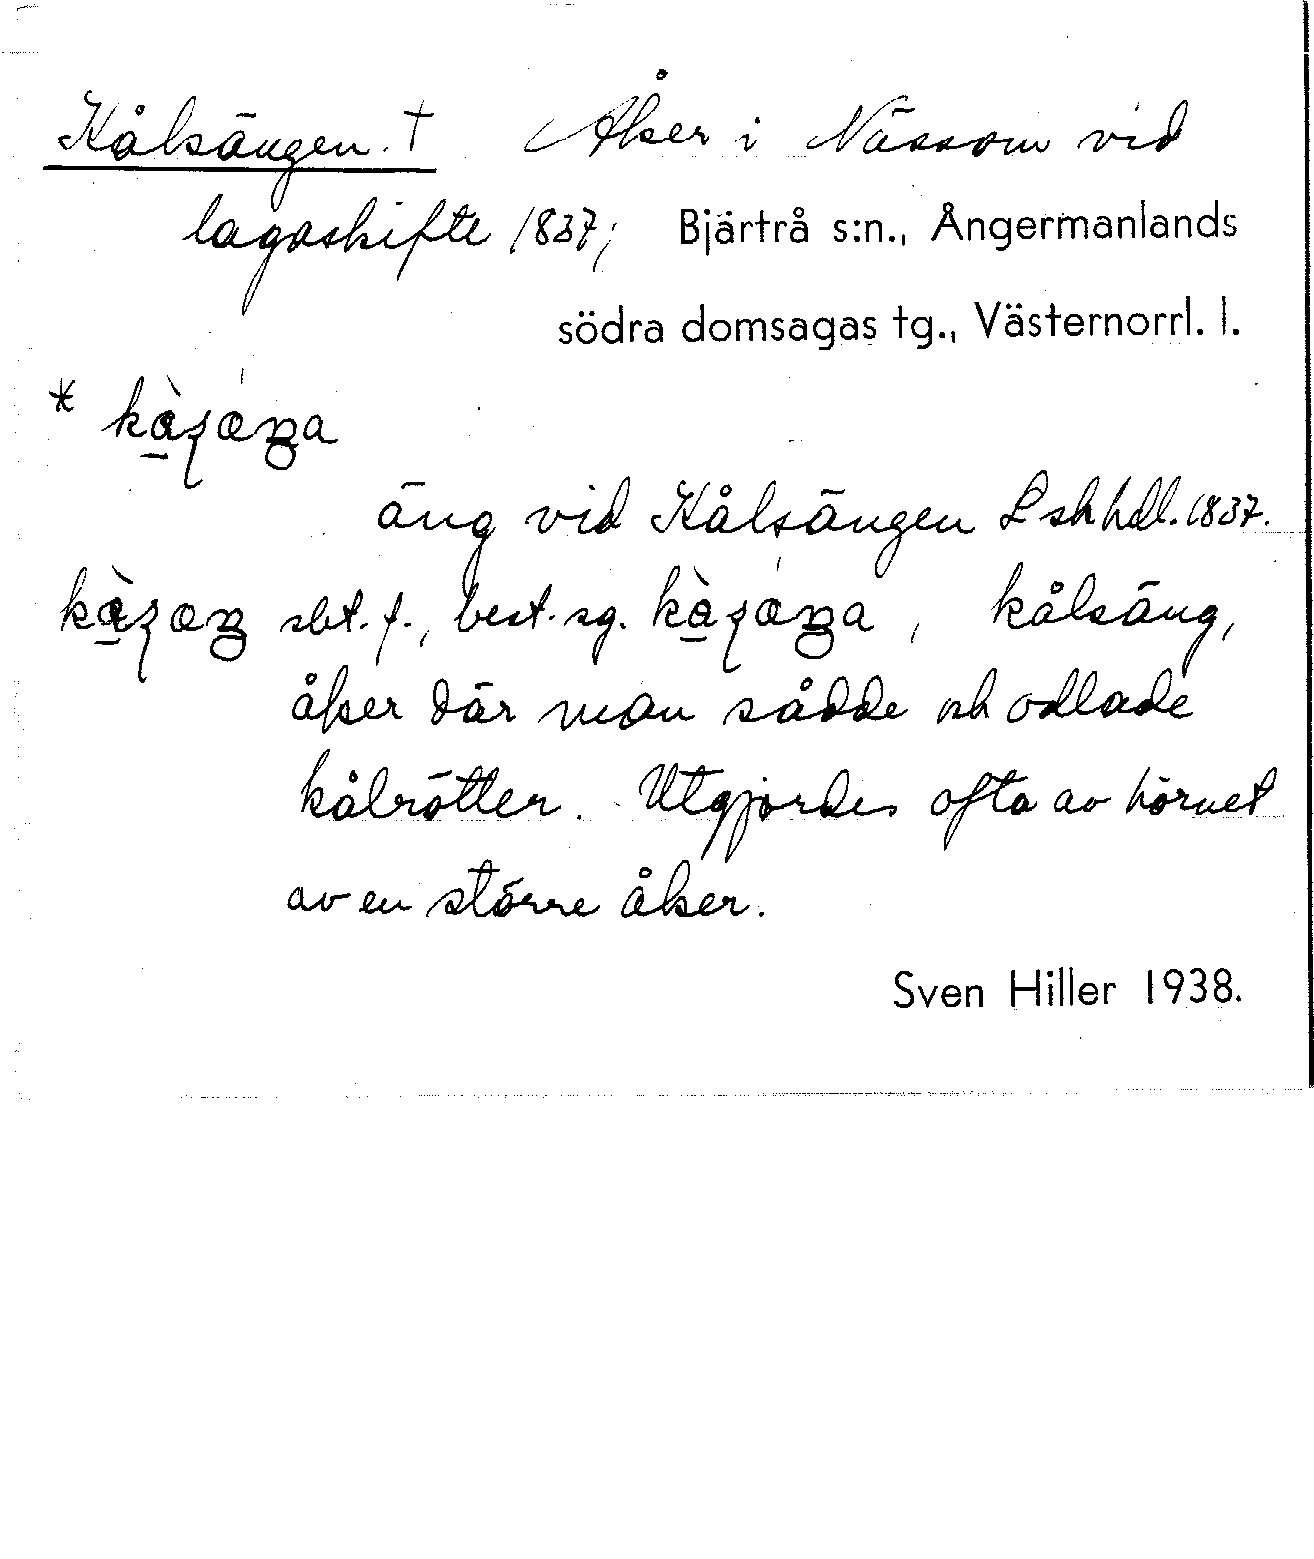 Kålsängen. † Åker i Nässom vid
lagaskifte 1837; Bjärtrå s:n., Ångermanlands
södra domsagas tg., Västernorrl. l.
äng vid Kålsängen Lskhdl. 1837.
sbt. f., best. sg. , kålsäng,
åker där man sådde och odlade
kålrötter. Utgjordes ofta av hörnet
av en större åker.
Sven Hiller 1938.